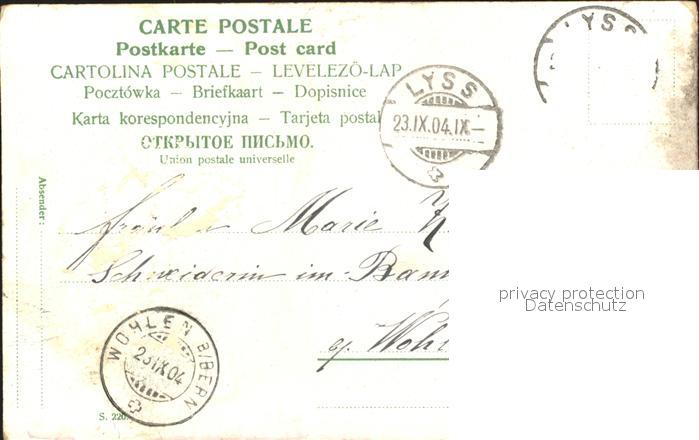 CARTE POSTALE
Postkarte — Post card
CARTOLINA POSTALE – LEVELEZŐ-LAP
Pocztówka – Briefkaart – Dopisnice
Karta korespondencyjna – Tarjeta postal
ОТКРЫТОЕ ПИСЬМО.
Union postale universelle
LYSS
23.IX.04.IX–
LYSS
Absender:
Fräulein Marie
Schneiderin im
privacy protection
Datenschutz
WOHLEN B/BERN
23 IX 04
S. 220